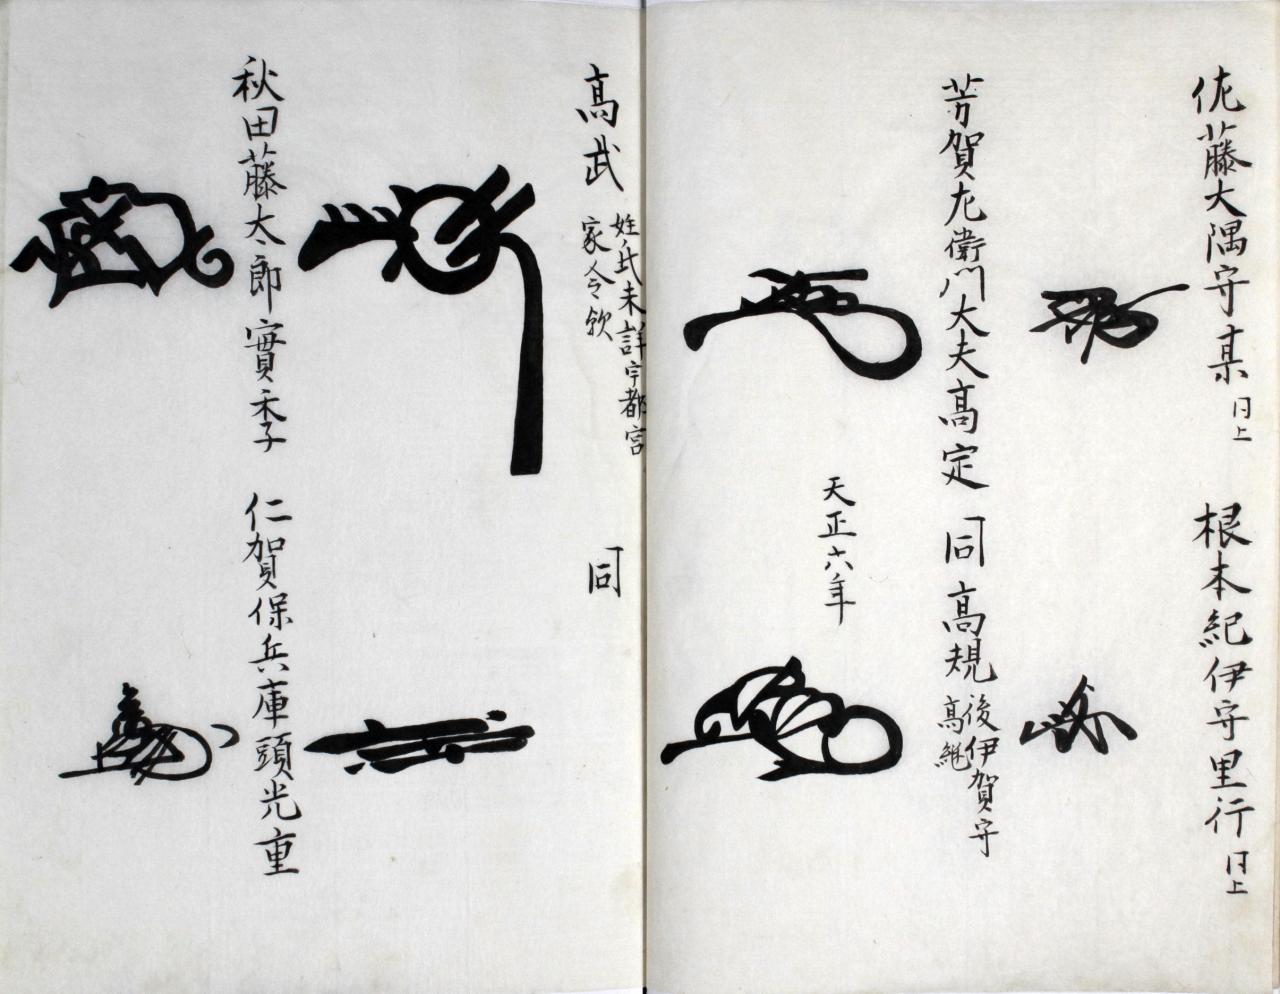 佐藤大隅守某 同上
根本紀伊守里行 同上
芳賀左衛門大夫高定
同 高規 後伊賀守
高継
天正六年
高武 姓氏未詳宇都宮
家令歟
同
秋田藤太郎實季
仁賀保兵庫頭光重